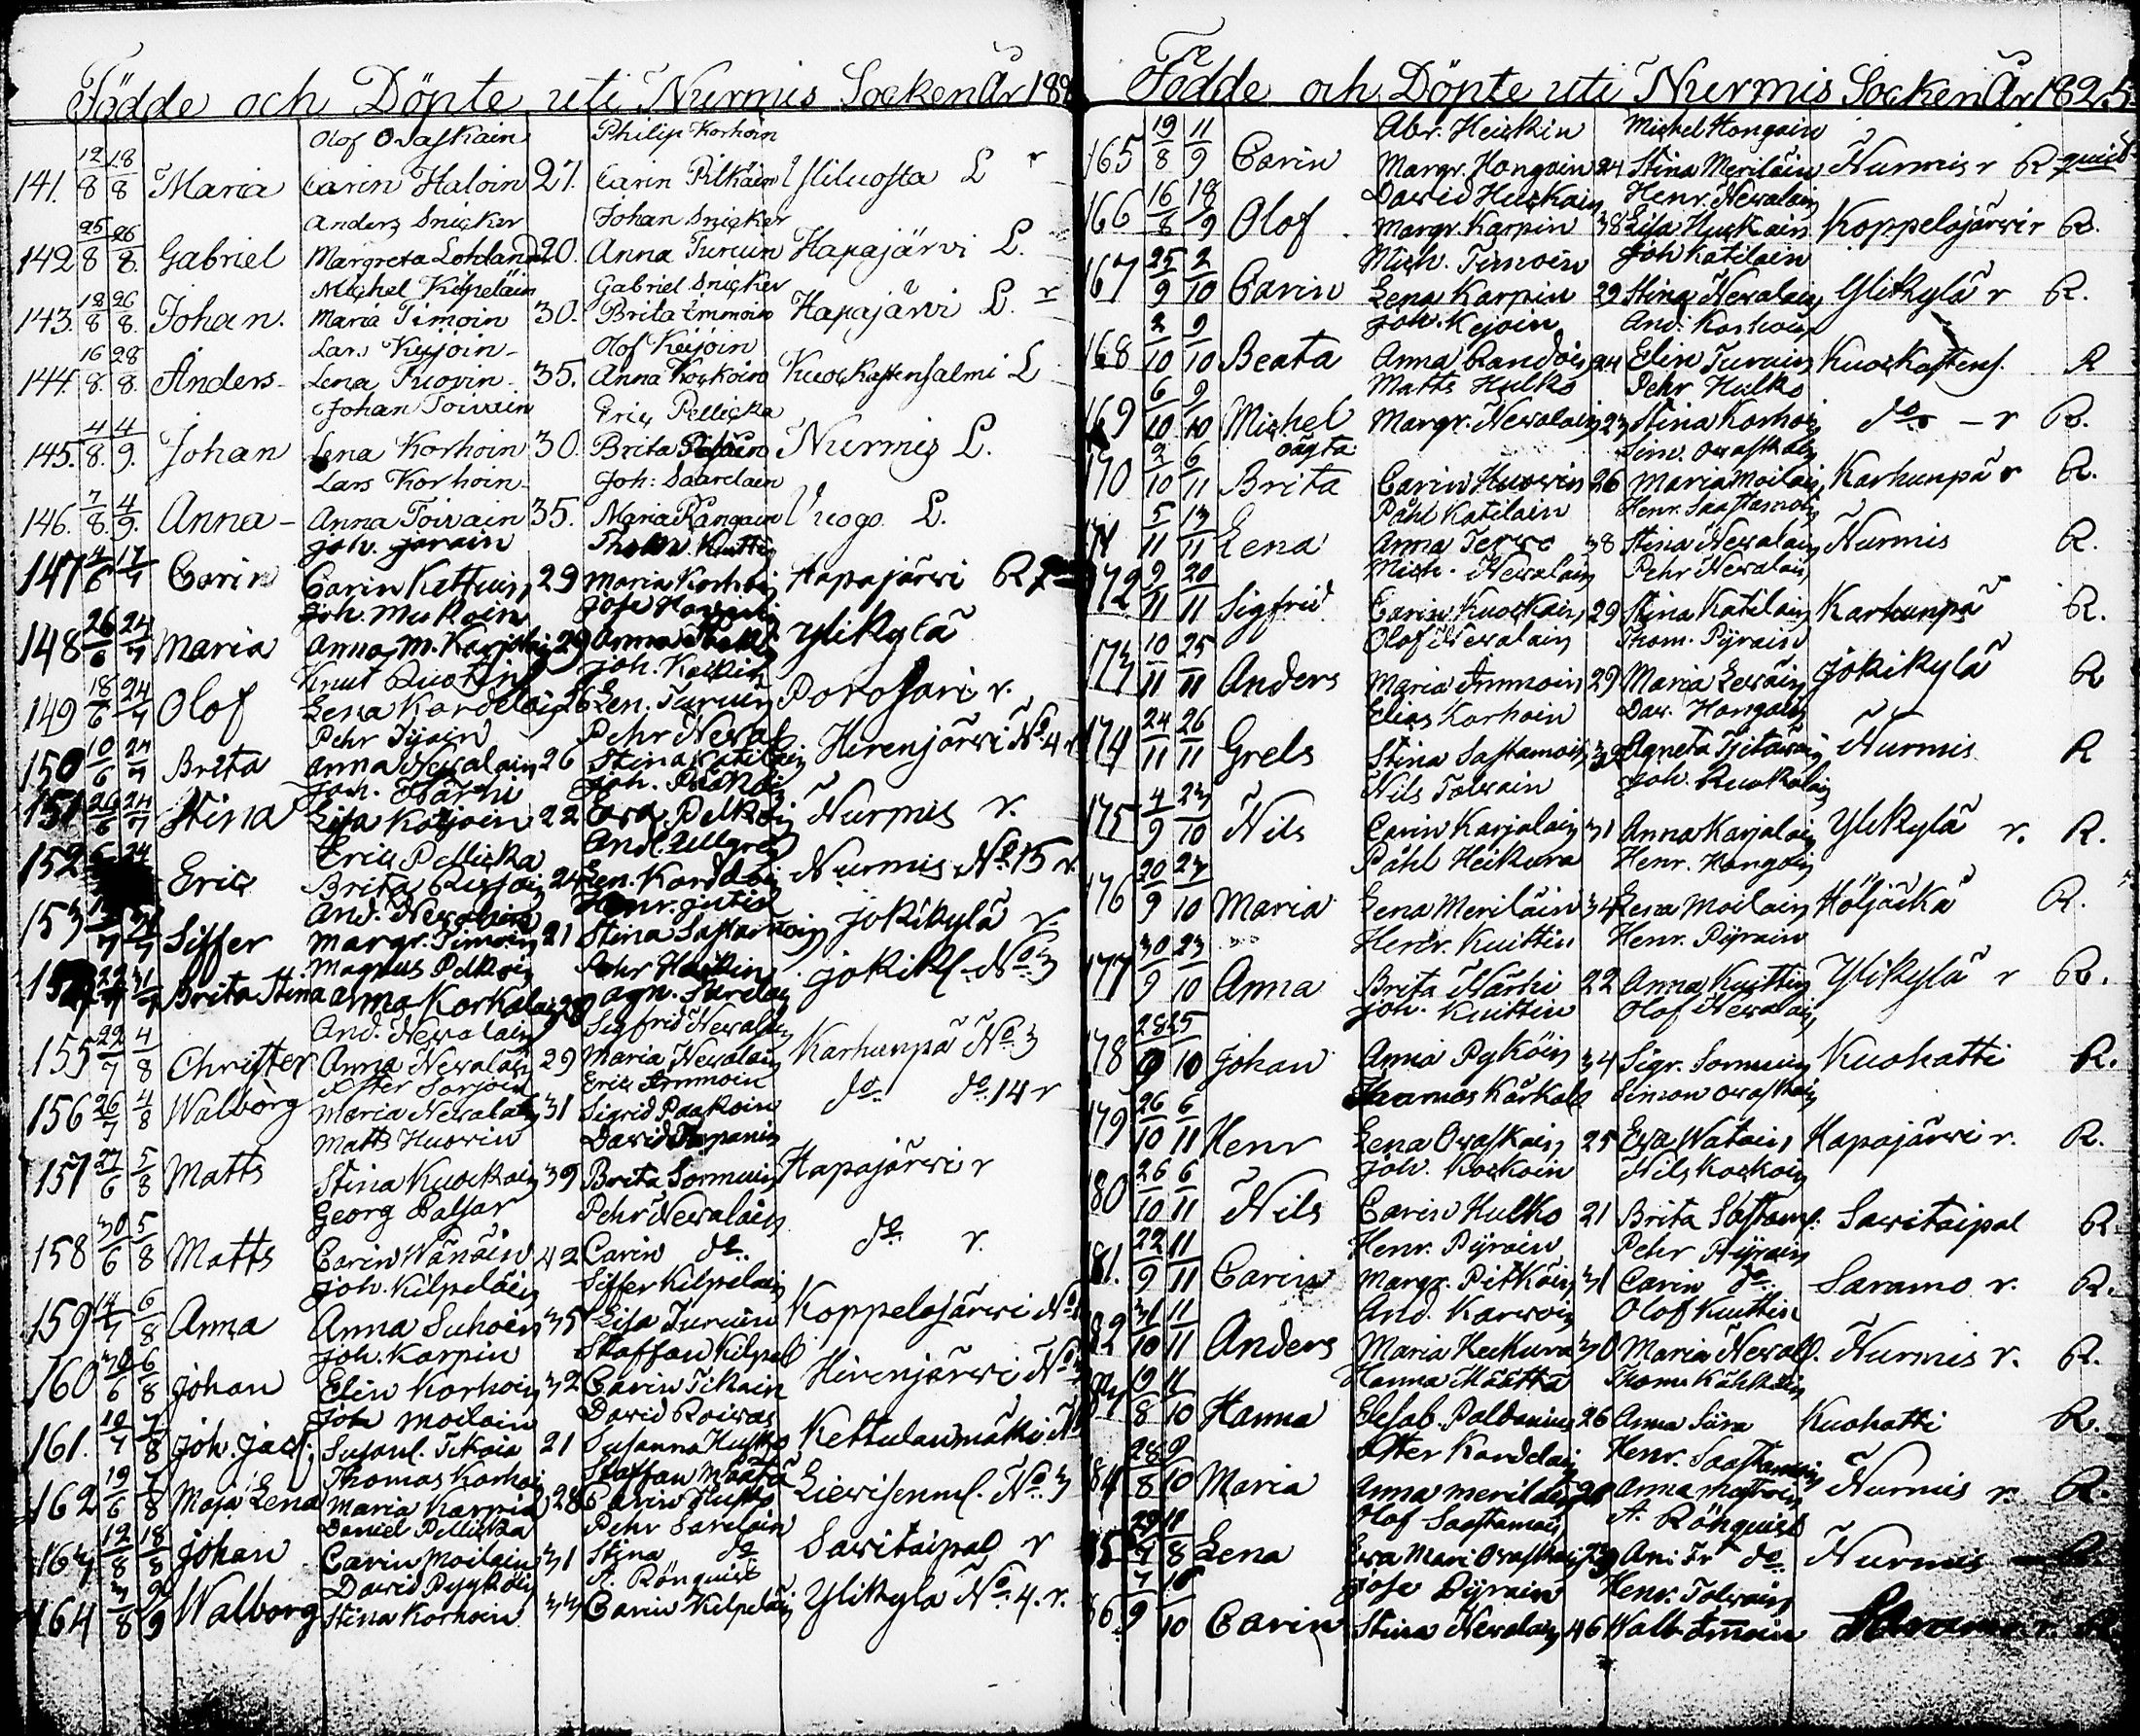 Födde och Döpte uti Nurmis Socken År 182
Olof Ovaskain Philip Korhoin
141. 12/8 18/8 Maria Carin Haloin 27. Carin Pitkäin Yliluosta L r
Anders Snicker Johan Snicker
142 25/8 26/8. Gabriel Margreta 20. Anna Turuin Hapajärvi L.
Michel Kilpeläin Gabriel Snicker
143. 18/8 26/8. Johan. Maria Timoin 30. Brita Immoin Hapajärvi L. r
Lars Keijoin Olof Keijoin
144. 16/8. 28/8. Anders Lena Tuovin 35. Anna Koskoin Kuockastensalmi L
Johan Toivain Eric Pellicka
145. 4/8. 4/9. Johan Lena Korhoin 30. Brita Nurmis L.
Lars Korhoin Joh: Saarelain
146. 7/8. 4/9. Anna Anna Toivain 35. Maria Kångain Vuogo L.
Joh. Thom. Kuittin
147 4/6 17/7 Carin Carin Kettuin 29 Maria Korhoin Hapajärwi R
Joh. Muikoin Jose
148 26/6 24/7 Maria Anna M. 29 Anna Ylikylä
Knut Ruotin Joh.
149 18/6 24/7 Olof Lena Kordelain 26 Len. Turuin Porosari r.
Pehr Pehr Neval
150 10/6 24/7 Brita Anna Nevalain 26 Stina Katilain Hirenjärwi No 4 r
Joh. Joh.
151 26/6 24/7 Stina Lisa 22 Eva Pelkoin Nurmis r.
Eric Pellicka And. Ullgren
152 24 Eric Brita 24 Len. Kordelain Nurmis No 15 r.
And. Nevalain Henr.
153 Siffer Margr. Timoin 21 Stina Sastamoin Jokikylä r
Magnus Pelkoin Pehr Heickin
22/7 31/7 Brita Stina Anna 28 Agn. Jokikl. No 3
And. Nevalain Sigfrid Nevalain
155 22/7 4/8 Christer Anna Nevalain 29 Maria Nevalain Karhunpä No 3
Öster Sorjoin Eric Immoin
156 26/7 4/8 Walborg Maria Nevalain 31 Sigrid Paakoin do. do. 14 r
Matts Huovin David
157 27/6 5/8 Matts Stina Kuockain 39 Brita Sormuin Hapajärwi r
Georg Palsar Pehr Nevalain
158 30/6 5/8 Matts Carin Wänäin 42 Carin do. do. r.
Joh. Kilpeläin Siffer Kilpelain
159 14/7 6/8 Anna Anna Suhoin 35 Lisa Turuin Koppelojärwi No
Joh. Karpin Staffan Kilpel
160 30/6 6/8 Johan Elin Korhoin 32 Carin Tikain Hirenjärwi No
Joh Moilain David Roivas
161. 10/7 7/8 Joh. Jac. Susanl. Tikain 21 Susanna Kettulanmäki No
Thomas Korhoi Staffan Määtä
162 19/6 7/8 Maja Lena Maria Karpin 28 Carin No 3
Daniel Pellicka Pehr Sarelain
163 12/8 18/8 Johan Carin Moilain 31 Stina do Savitaipal r
David Pyyköin A. Rönquist
164 3/8 9 Walborg Stina Korhoin 33 Carin Kilpeläin Ylikylä No. 4. r.
Födde och Döpte uti Nurmis Socken År 1825
Abr. Heickin Michel Hongain
165 19/8 11/9 Carin Margr. Hongain 24 Stina Meriläin Nurmis r R
David Huckain Henr. Nevalain
166 16/8 18/9 Olof Margr. Karpin 38 Lisa Huckain Koppelojärwi r R.
Mich. Timoin Joh Katilain
167 25/9 2/10 Carin Lena Karpin 29 Stina Nevalain Ylikylä r R.
Joh. Kejoin And. Korhoin
168 2/10 9/10 Beata Anna 24 Elin Turuin Kuockastens. R
Matts Hulko Pehr Hulko
169 6/10 9/10 Michel Margr. Nevalain 23 Stina Korhoin do. - r R.
oägta Sim. Ovaskain
170 2/10 6/11 Brita Carin Huovin 26 Maria Moilain Karhunpä r R.
Påhl Katilain Henr. Saastamoin
171 5/11 13/11 Lena Anna Tervo 38 Stina Nevalain Nurmis R.
Mich. Nevalain Pehr Nevalain
172 9/11 20/11 Sigfrid Carin Kuockain 29 Stina Katilain Karhunpä R.
Olof Nevalain Thom. Pyrain
173 10/11 25/11 Anders Maria Immoin 29 Maria Leväin Jokikylä R
Elias Korhoin Dav. Hongain
174 24/11 26/11 Grels Stina Sastamoin 32 Agneta Nurmis R
Nils Tolvain Joh. Ruokolain
175 4/9 23/10 Nils Carin Karjalain 31 Anna Karjalain Ylikylä r. R.
Påhl Heikura Henr. Hongain
176 20/9 23/10 Maria Lena Meriläin 34 Lena Moilain Höljäckä R.
Henr. Kuittin Henr. Pyrain
177 30/9 23/10 Anna Brita Närhi 22 Anna Kuittin Ylikylä r R.
Joh. Kuittin Olof Nevalain
178 28/9 25/10 Johan Anna Pyköin 34 Sigr. Sormuin Kuohatti R.
Thomas Kärkäs Simon Ovaskain
179 26/10 6/11 Henr Lena Ovaskain 25 Eva Watain Hapajärwi r. R.
Joh. Koskoin Nils Koskoin
180 26/10 6/11 Nils Carin Hulko 21 Brita Sastam: Savitaipal R.
Henr. Pyrain Pehr Pyrain
181. 22/9 11/11 Carin Margr. Pitkäin 31 Carin do. Saramo r. R.
And. Karvoin Olof Kuittin
182 31/10 11/11 Anders Maria Heikura 30 Maria Neval. Nurmis r. R.
Hanna Määttä Thom Kähköin
183 19/8 11/10 Hanna Elisab. Paldanius 26 Anna Siira Kuohatti R.
Öster Kordelain Henr. Saastamoin
184 28/8 9/10 Maria Anna Meriläin Anna Nurmis r. R.
Olof Saastamoin A. Rönquist
85 8 Lena Eva Mari Ovaskain 29 Ani Fr do Nurmis
Jose Pyrain Henr. Tolvain
86 7/9 10 Carin Stina Nevalain 46 Walb Immoin Saramo r. R